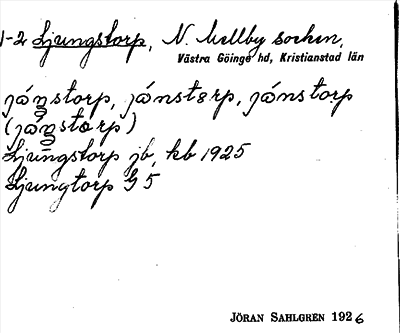 1-2 Ljungstorp, N. Mellby socken,
Västra Göinge hd, Kristianstad län
jáŋstorp, jánstərp, jánstorp
(jáŋstərp)
Ljungstorp jb, kb 1925
Ljungtorp G 5
JÖRAN SAHLGREN 1926